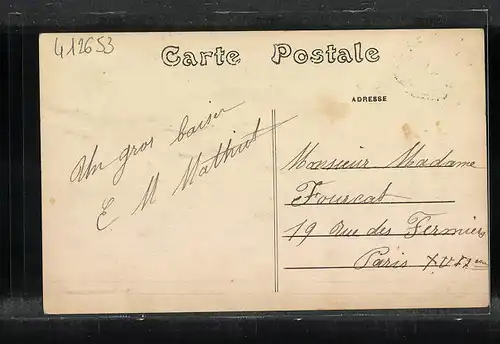 412653
Carte Postale
ADRESSE
Un gros baiser
E M Mathiot
Monsieur Madame
Fourcat
19 Rue des Fermiers
Paris XVII eme